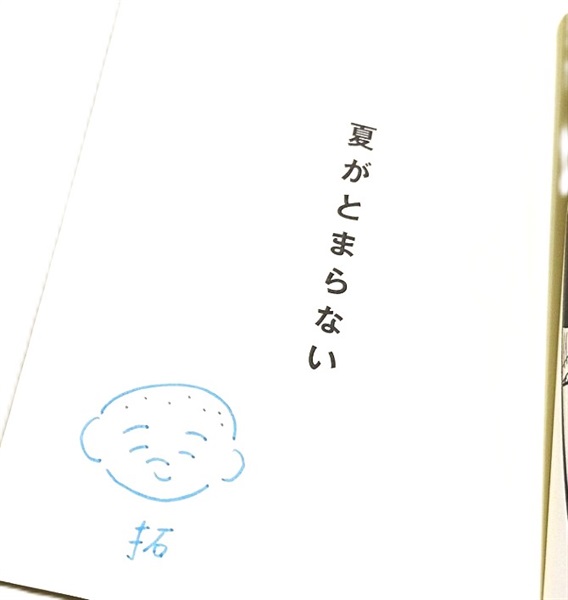 夏がとまらない
拓